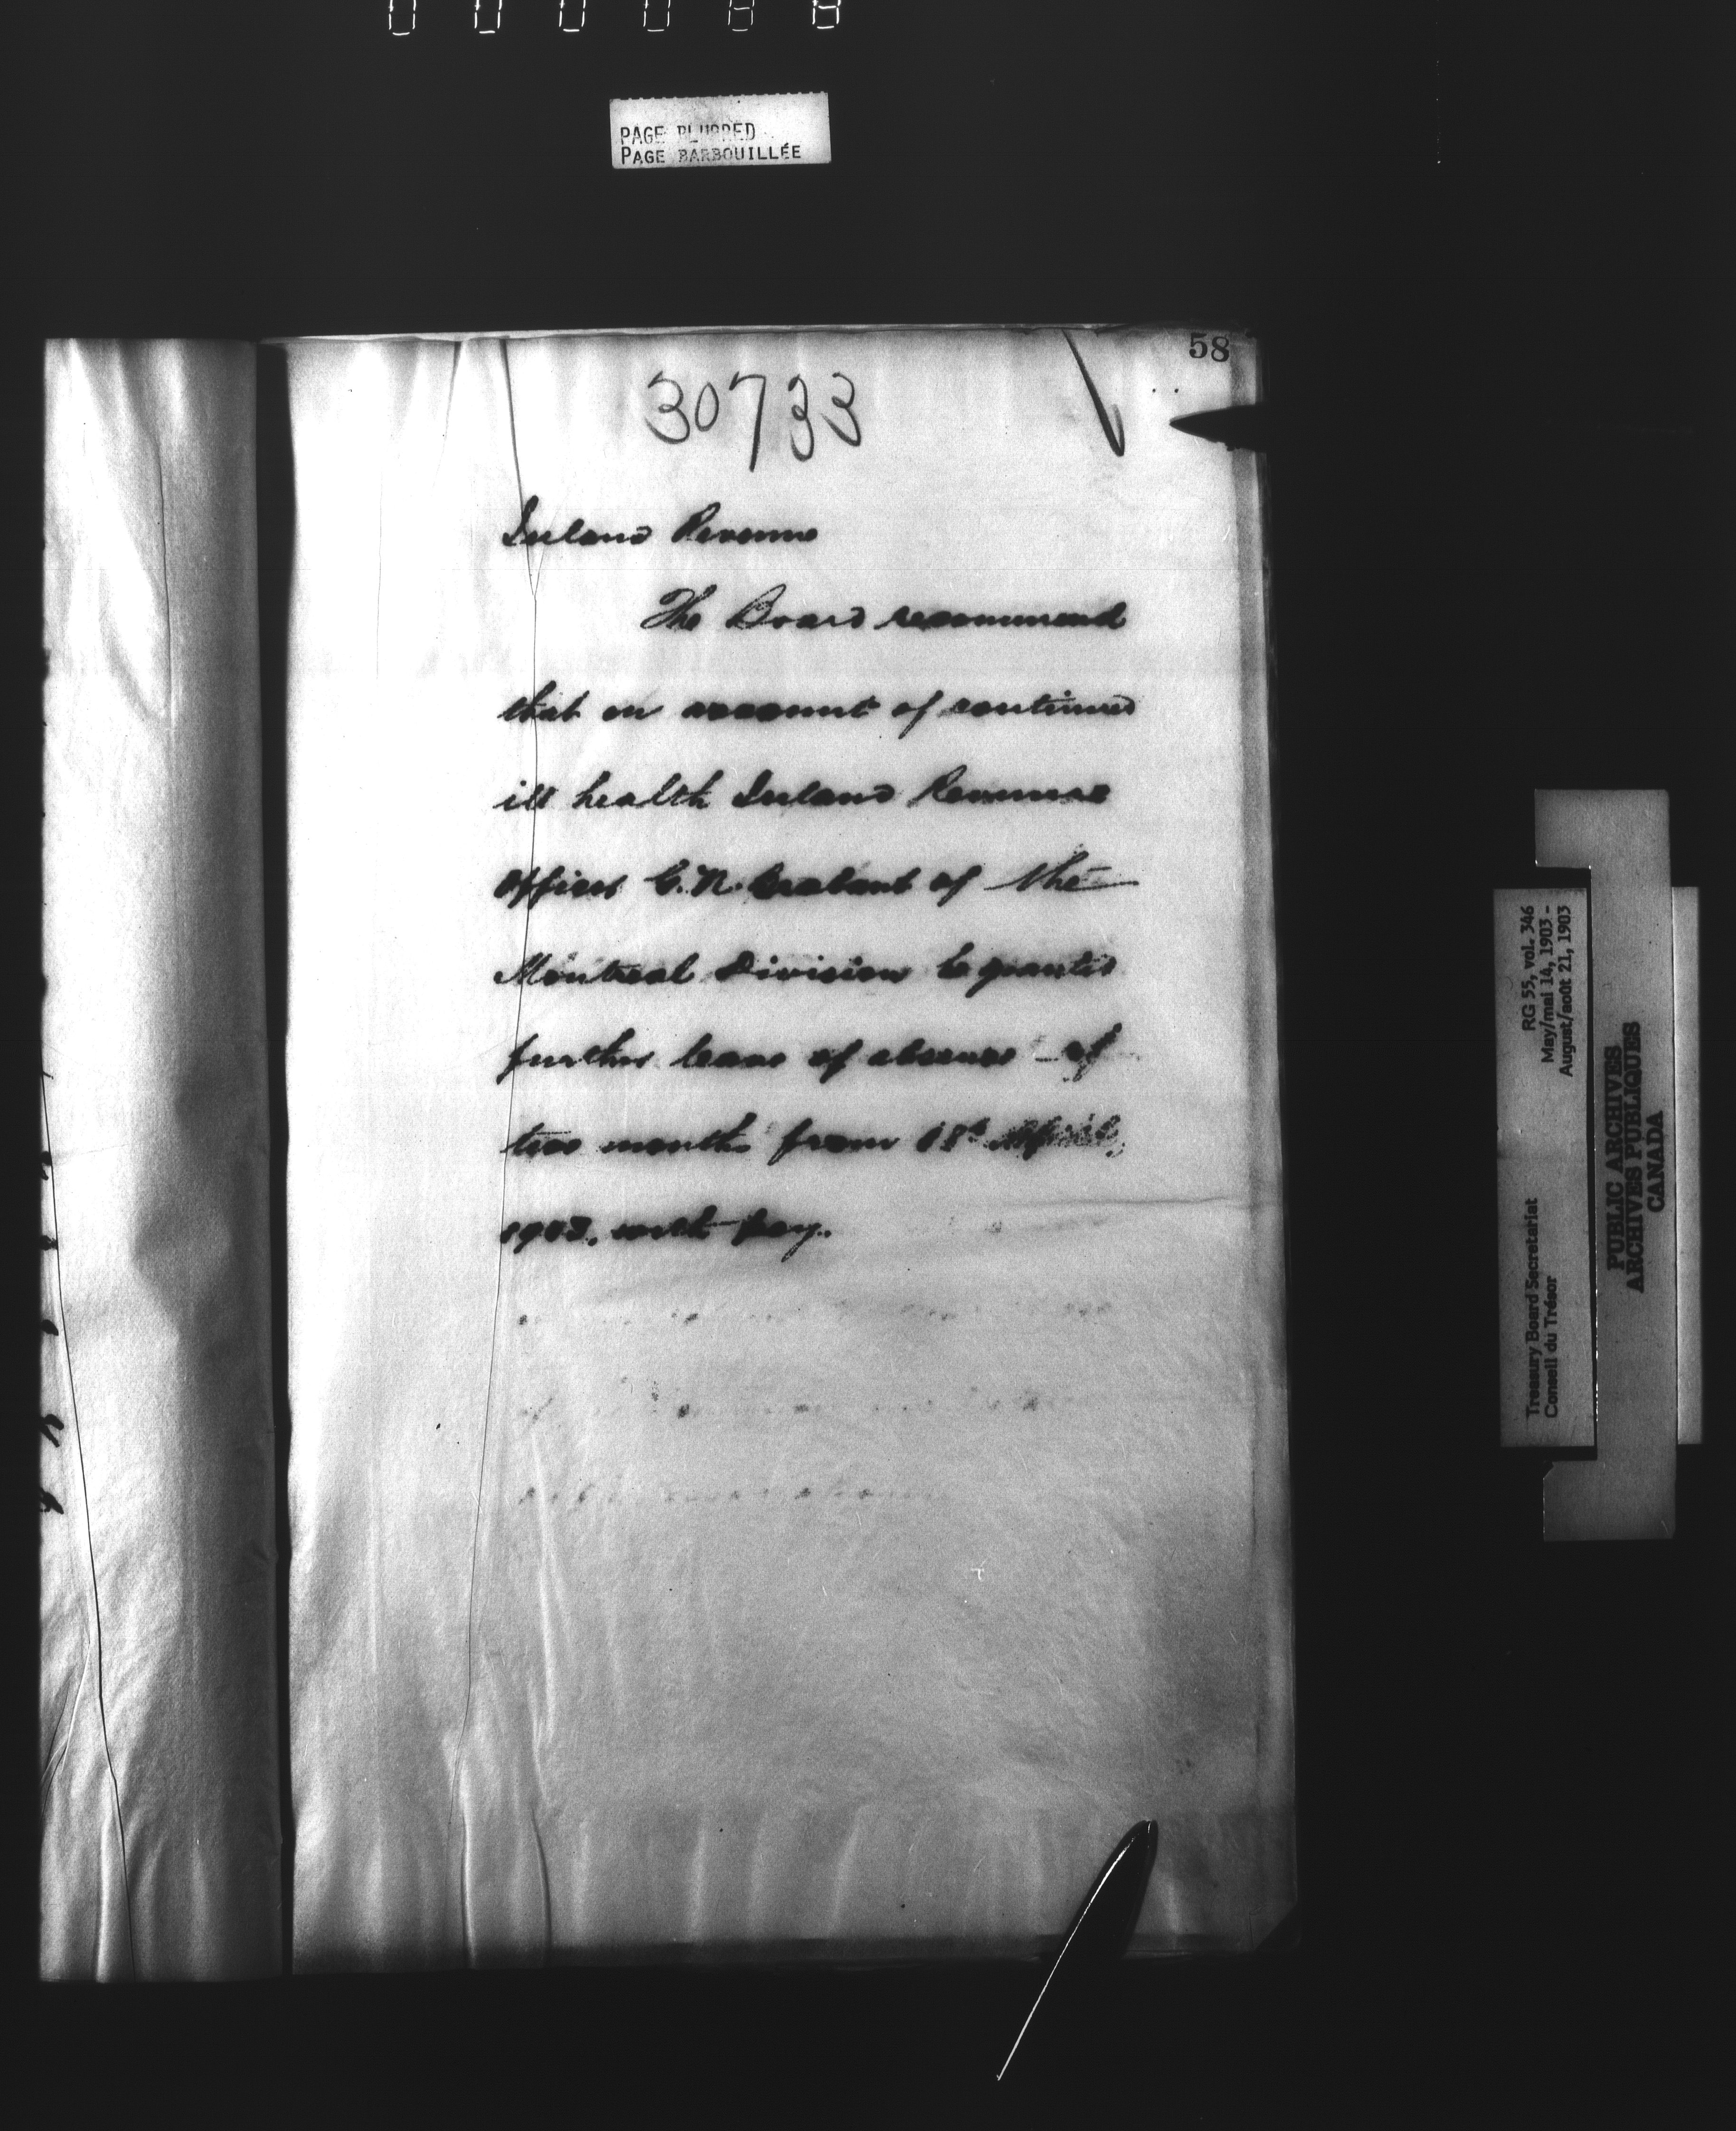 PAGE BLURRED
PAGE BARBOUILLÉE
58
30733
Inland Revenue
The Board recommend
that on account of continued
ill health Inland Revenue
Officer C. N. of the
Montreal Division be granted
further leave of absence of
two months from 18th April,
1903, with pay.
RG 55, vol. 346
May/mai 14, 1903 -
August/août 21, 1903
Treasury Board Secretariat
Conseil du Trésor
PUBLIC ARCHIVES
ARCHIVES PUBLIQUES
CANADA